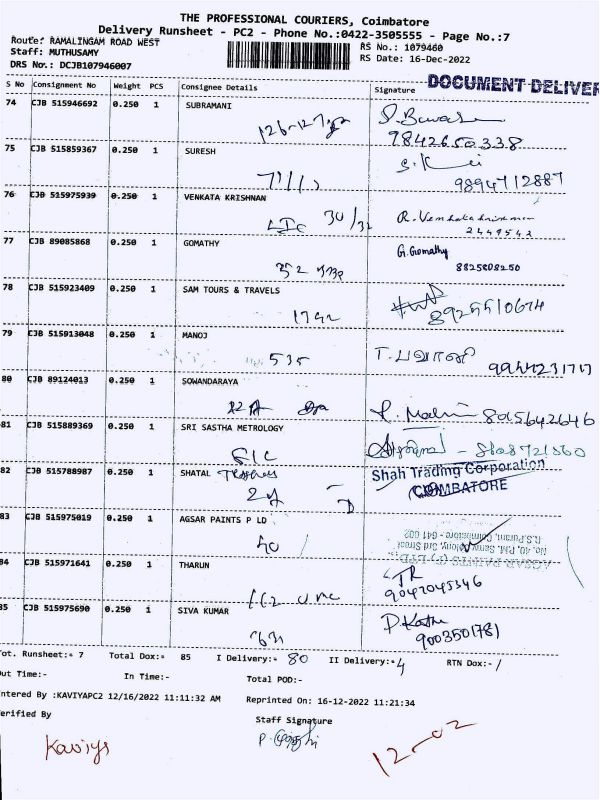 THE PROFESSIONAL COURIERS, Coimbatore
Delivery Runsheet - PC2 - Phone No.:0422-3505555 - Page No.:7
Route: RAMALINGAM ROAD WEST
RS No.: 1079460
Staff: MUTHUSAMY
RS Date: 16-Dec-2022
DRS No.: DCJB107946007
DOCUMENT DELIVER
S No Consignment No Weight PCS Consignee Details Signature
74 CJB 515946692 0.250 1 SUBRAMANI
9842650338
75 CJB 515859367 0.250 1 SURESH
9894712887
76 CJB 515975939 0.250 1 VENKATA KRISHNAN
30/32 R. Venkatakrishnan
2449542
77 CJB 89085868 0.250 1 GOMATHY G. Gomathy
352 8825808250
78 CJB 515923409 0.250 1 SAM TOURS & TRAVELS
1742 8925510674
79 CJB 515913048 0.250 1 MANOJ
535
80 CJB 89124013 0.250 1 SOWANDARAYA
8015642646
81 CJB 515889369 0.250 1 SRI SASTHA METROLOGY
82 CJB 515788987 0.250 1 SHATAL Traders
Shah Trading Corporation
COIMBATORE
83 CJB 515975019 0.250 1 AGSAR PAINTS P LD
40
AGSAR PAINTS (P) LTD.
No. 40, P.M. Samy Colony, 3rd Street
R.S.Puram, Coimbatore - 641 002
84 CJB 515971641 0.250 1 THARUN
9042045346
85 CJB 515975690 0.250 1 SIVA KUMAR
9003501781
Tot. Runsheet:- 7 Total Dox:- 85 I Delivery:- 80 II Delivery:- 4 RTN Dox:- 1
Out Time:- In Time:- Total POD:-
Entered By :KAVIYAPC2 12/16/2022 11:11:32 AM Reprinted On: 16-12-2022 11:21:34
Verified By Staff Signature
Kaviya
12-02